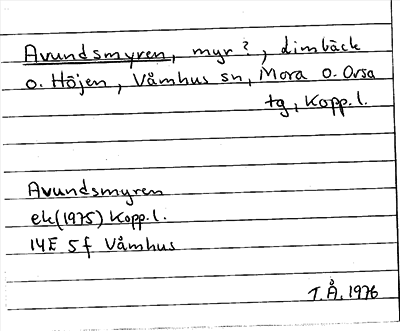 Avundsmyren, myr?, Limbäck
o. Höjen, Våmhus sn, Mora o. Orsa
tg, Kopp. l.
Avundsmyren
ek (1975) Kopp. l.
14E 5f Våmhus
T.Å. 1976